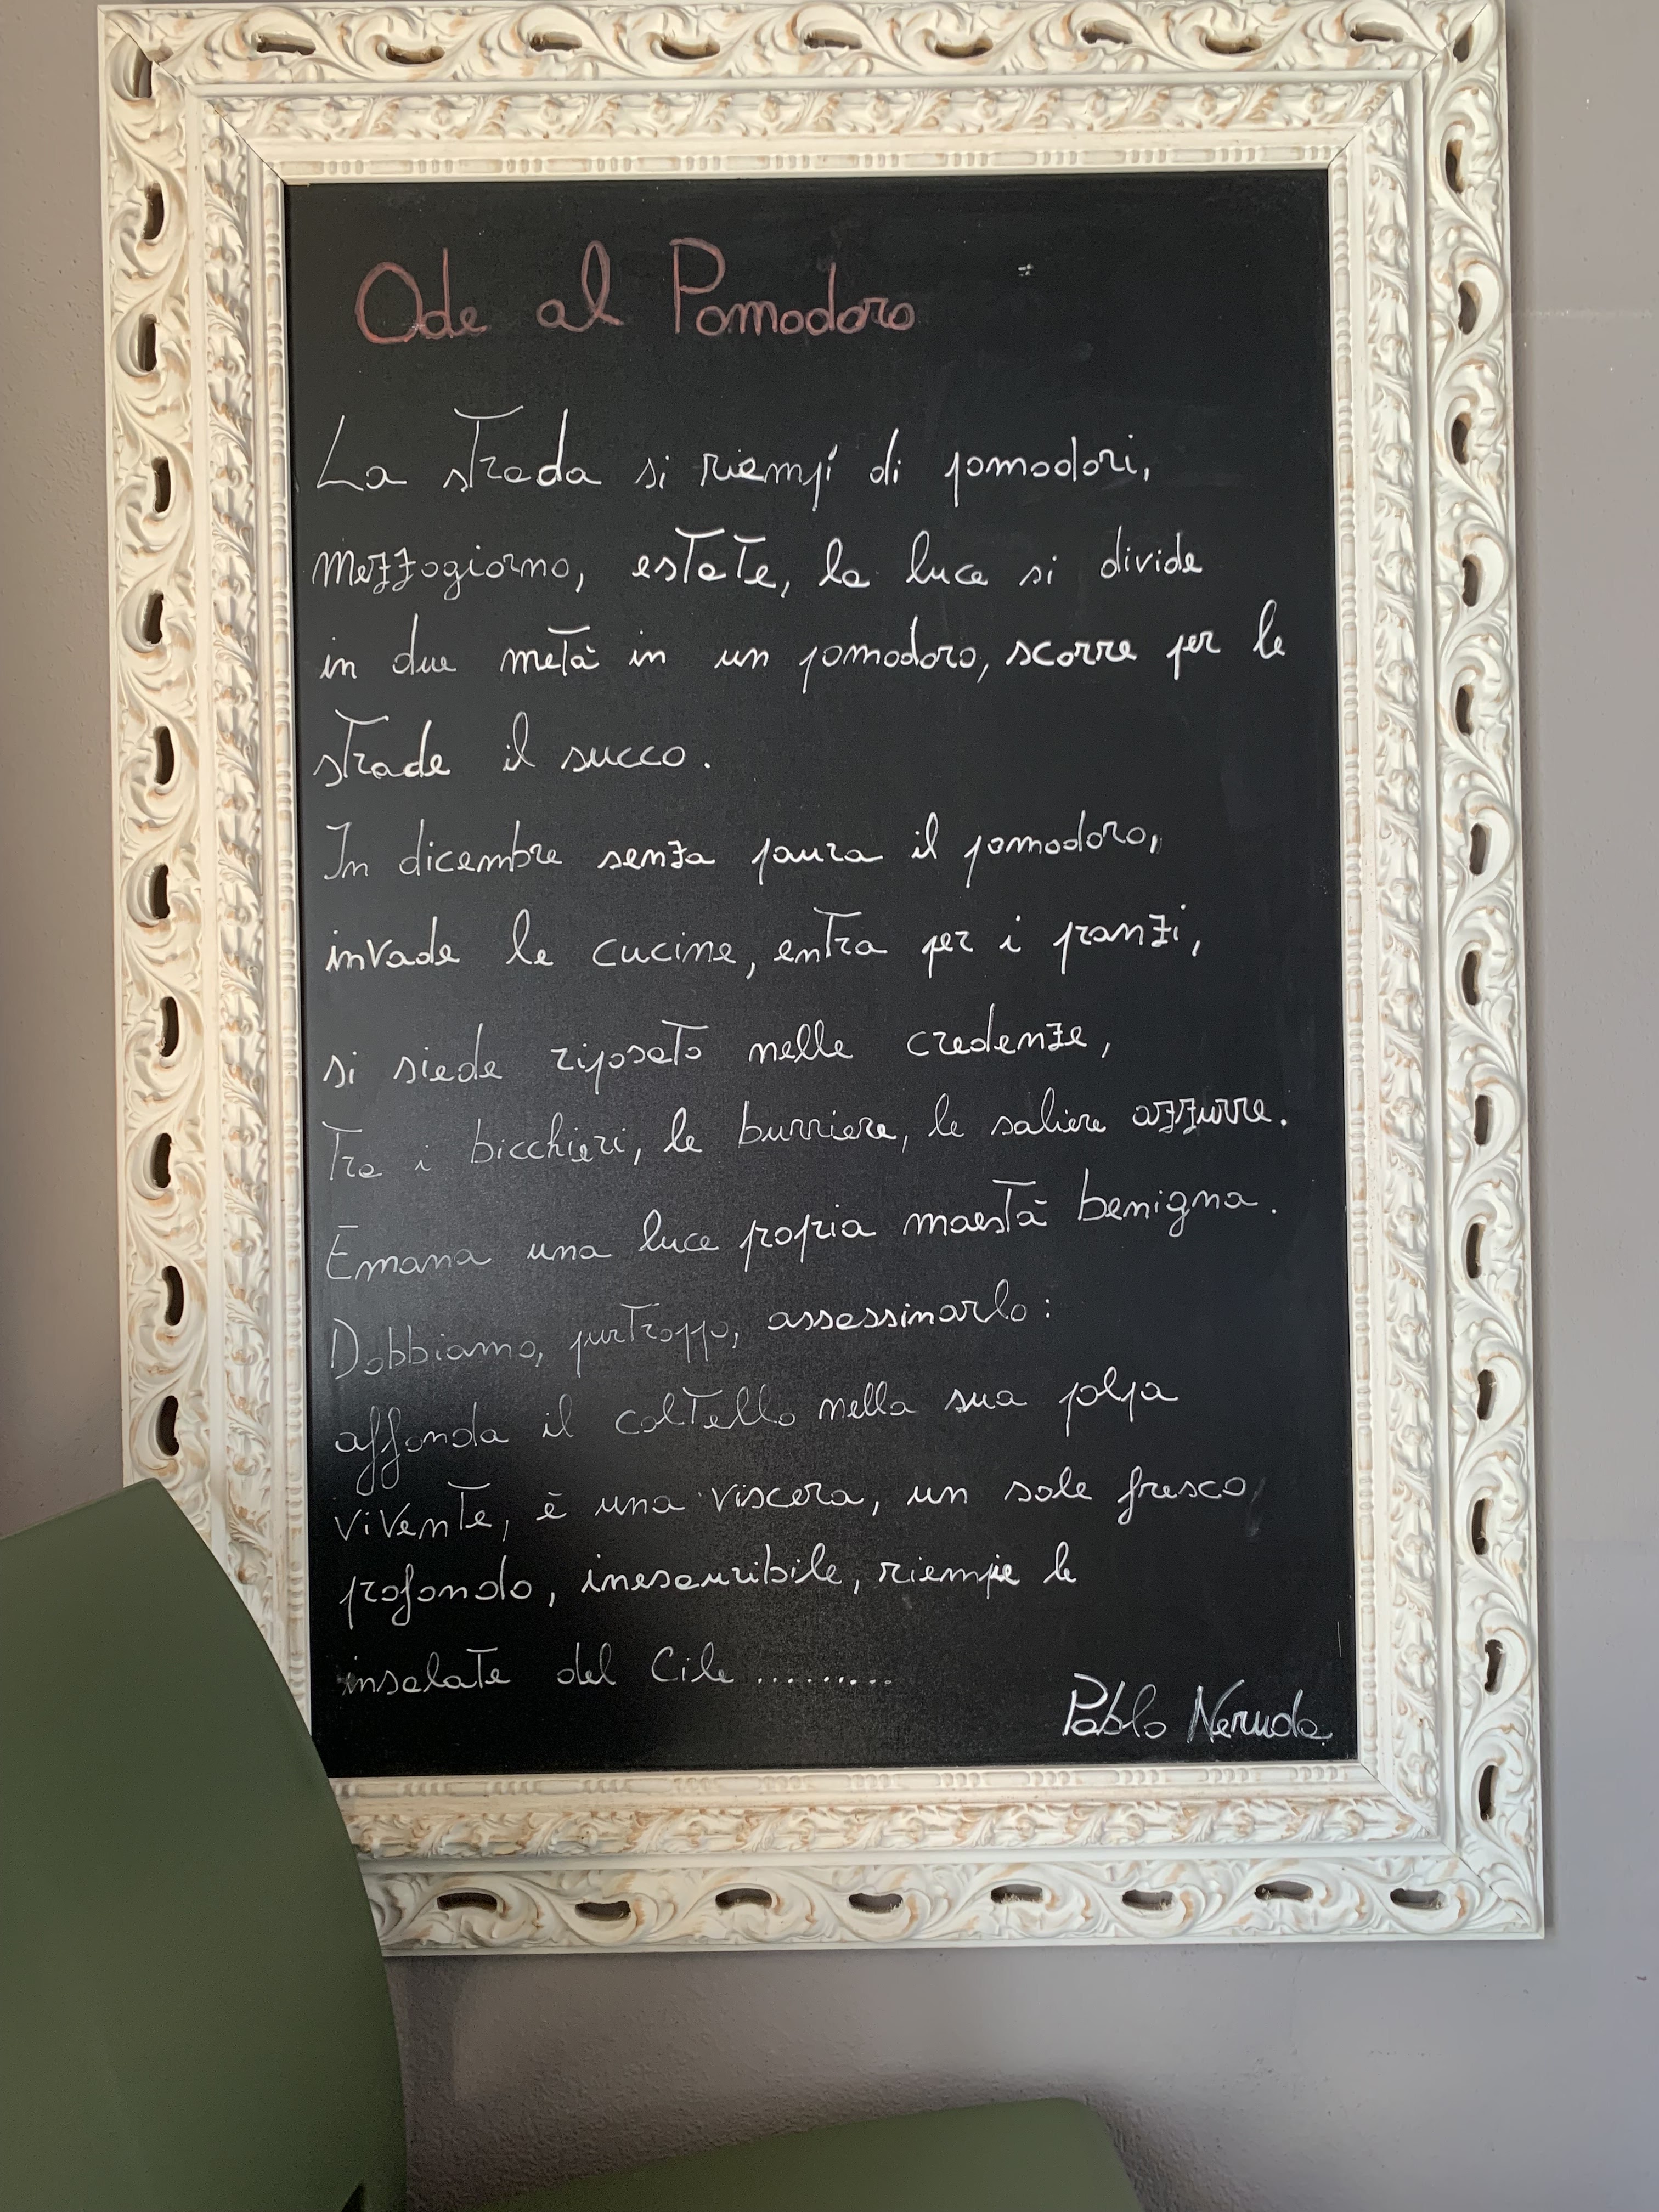 Ode al Pomodoro
La strada si riempí di pomodori,
mezzogiorno, estate, la luce si divide
in due metà in un pomodoro, scorre per le
strade il succo.
In dicembre senza paura il pomodoro,
invade le cucine, entra per i pranzi,
si siede riposato nelle credenze,
Tra i bicchieri, le burriere, le saliere azzurre.
Emana una luce propria maestà benigna.
Dobbiamo, purtroppo, assassinarlo:
affonda il coltello nella sua polpa
vivente, è una viscera, un sole fresco,
profondo, inesauribile, riempie le
insalate del Cile .........
Pablo Neruda